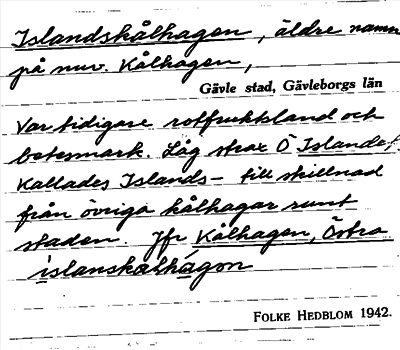 Islandskålhagen, äldre namn
på nuv. Kålhagen,
Gävle stad, Gävleborgs län
Var tidigare rotfruktsland och
betesmark. Låg strax Ö Islandet.
Kallades Islands- till skillnad
från övriga kålhagar runt
staden. Jfr Kålhagen, Östra
islanskalhágon
FOLKE HEDBLOM 1942.